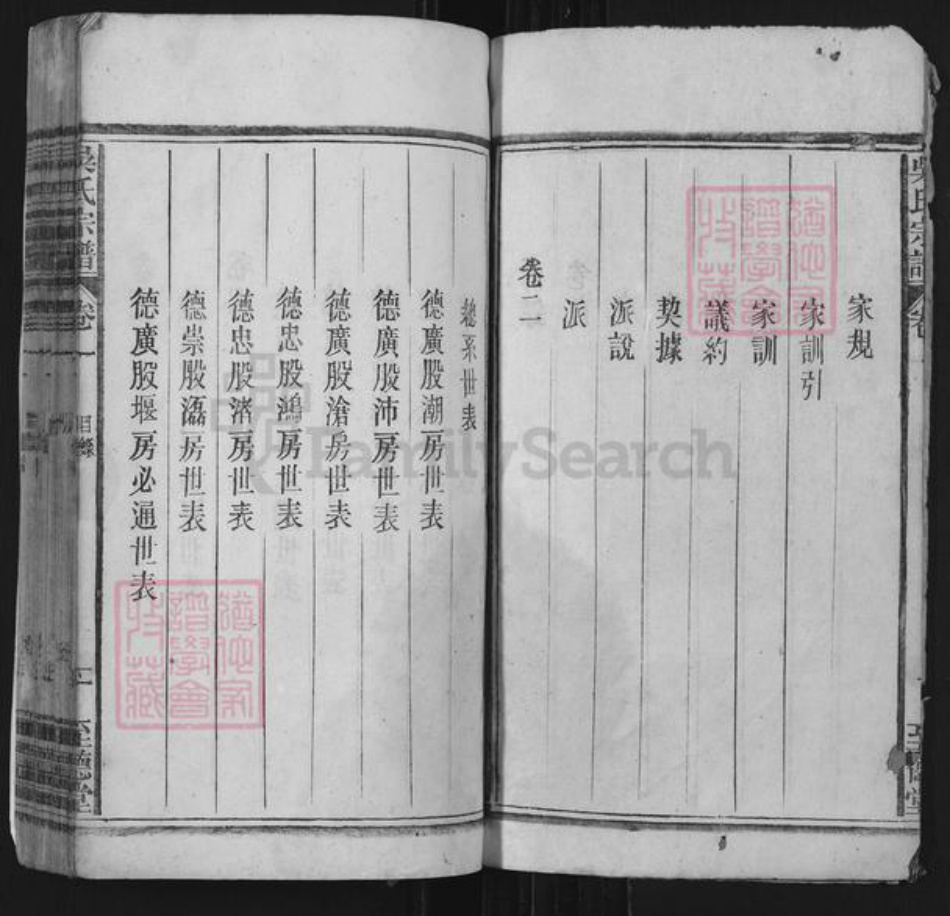 家規
家訓引
家訓
議約
契據
派說
派
卷二
總系世表
德廣股潮房世表
德廣股沛房世表
德廣股滄房世表
德忠股鴻房世表
德忠股濟房世表
德崇股㵢房世表
德廣股堰房必通世表
吳氏宗譜
卷一
目錄
至德堂
吳氏宗譜
卷
至德堂
譜學會
收藏
譜學會
收藏
FamilySearch